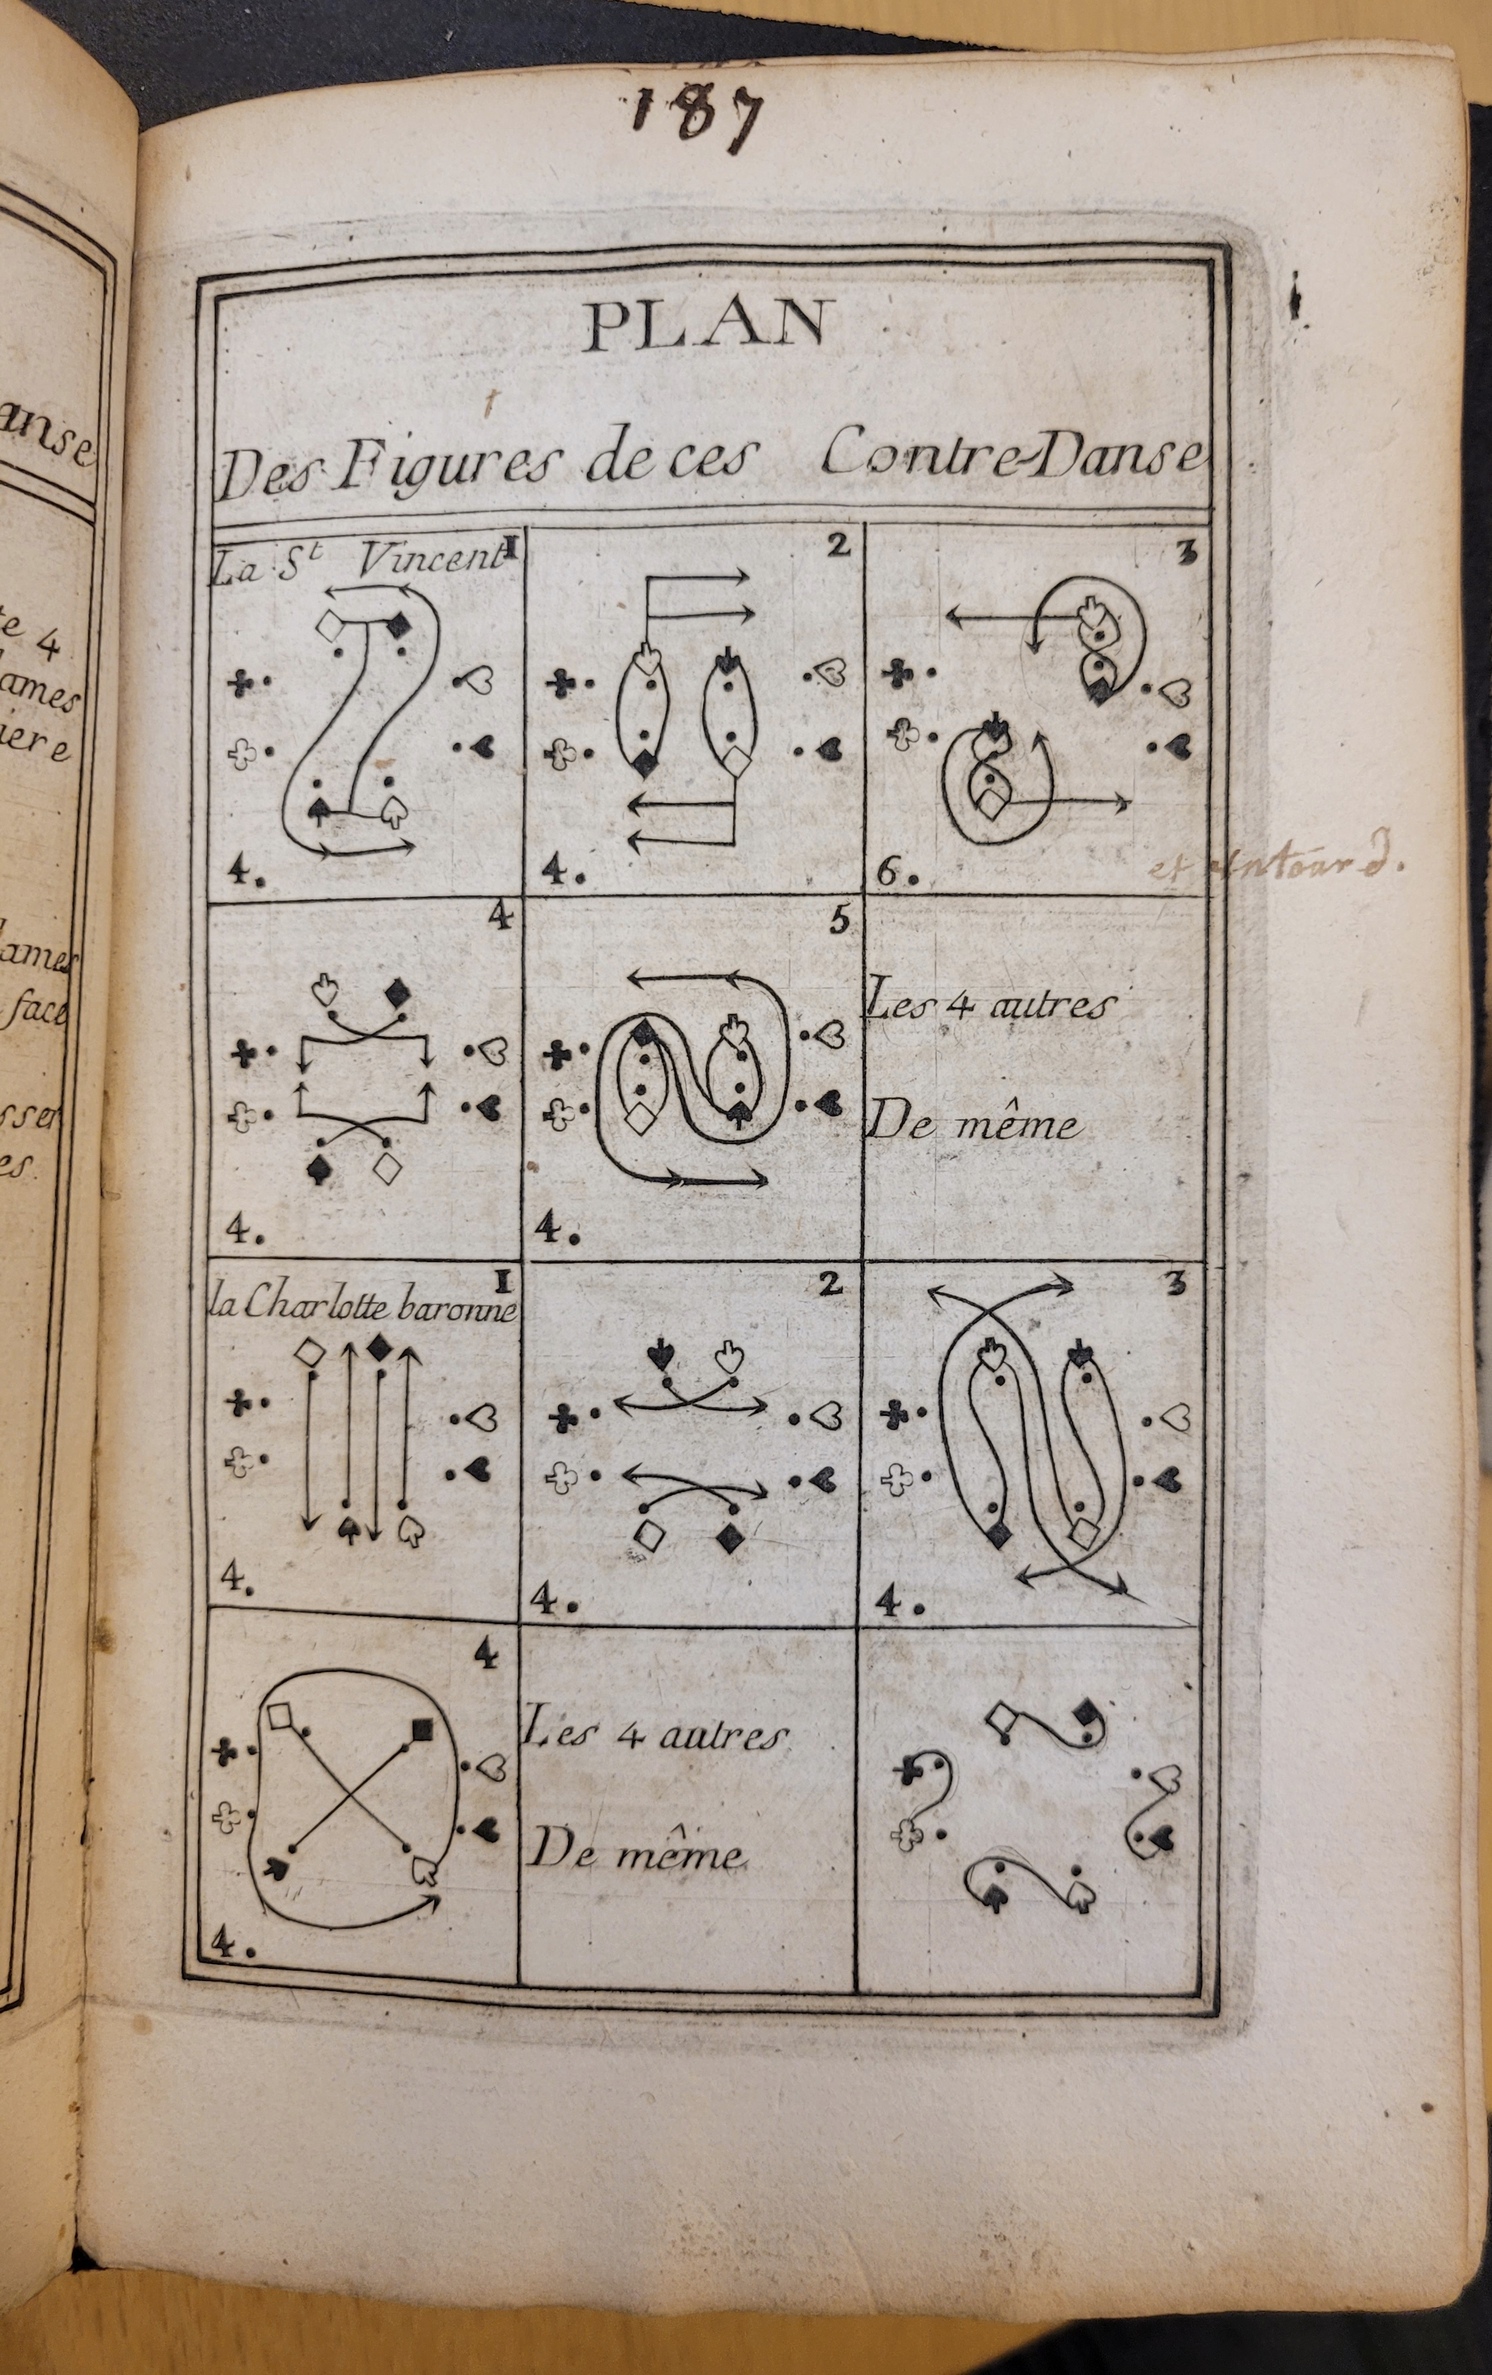 187
anse
te 4
ames
iere
ames
face
sser
es.
PLAN
Des Figures de ces Contre-Danse
La St Vincent 1
4.
2
4.
3
6.
et
4
4.
5
4.
Les 4 autres
De même
la Charlotte baronne 1
4.
2
4.
3
4.
4
4.
Les 4 autres
De même